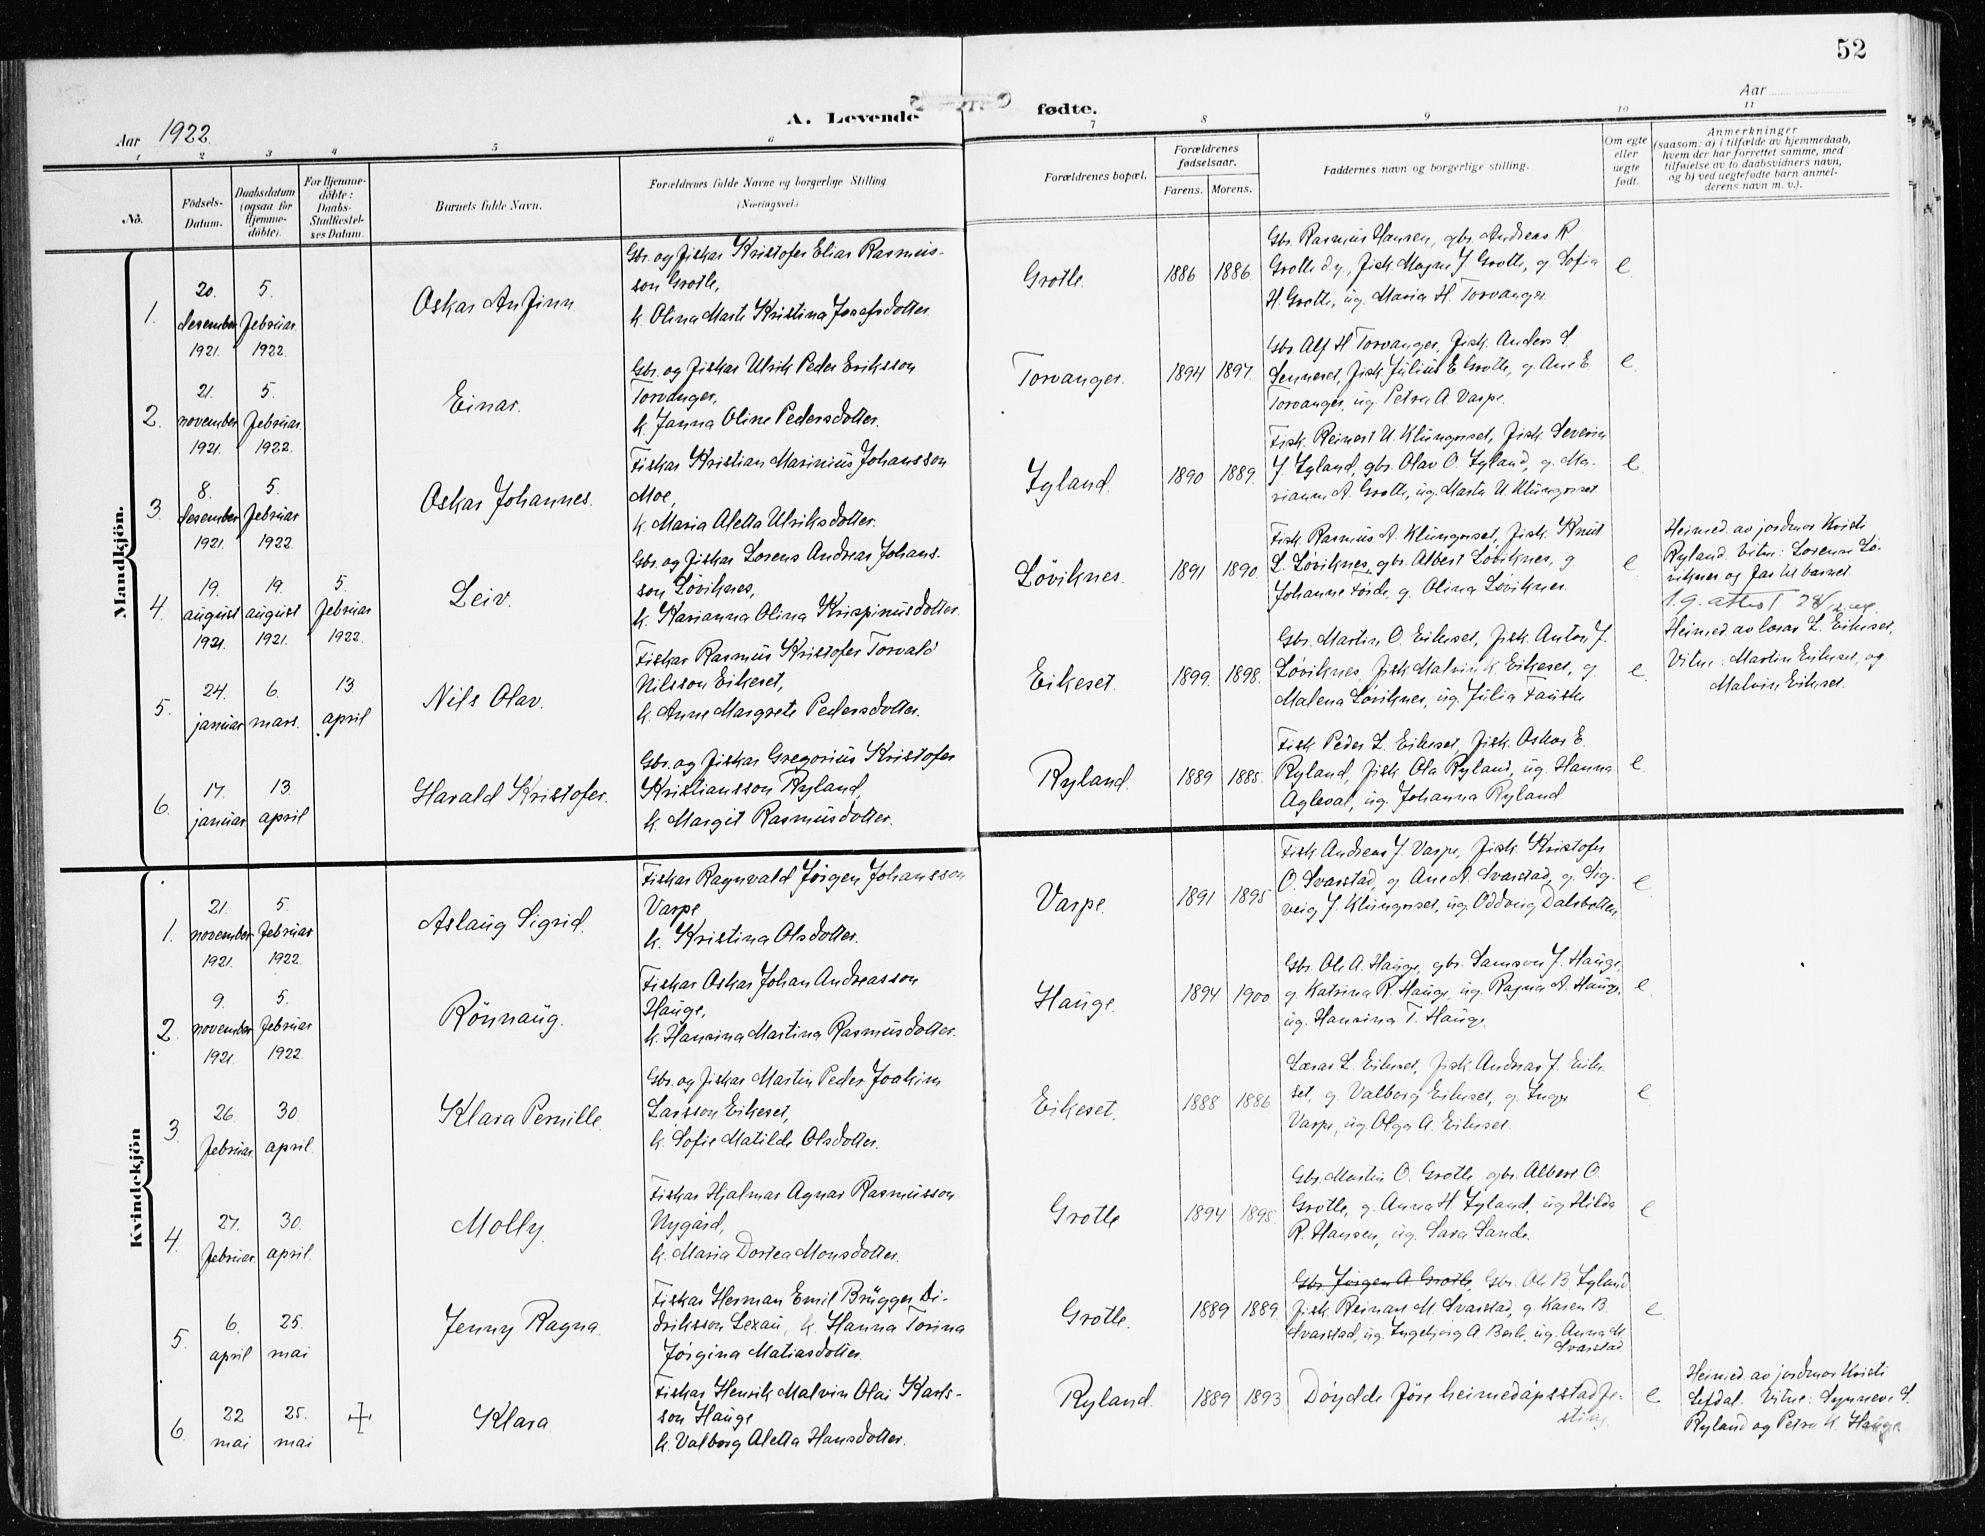 52
Aar 1922.
A. Levende
fødte.
Aar
1 2 3 4 5 6 7 8 9 10 11
No.
Födsels-
Datum.
Daabsdatum
(ogsaa for
Hjemme-
döbte).
For Hjemme-
döbte:
Daabs-
Stadfæstel-
ses Datum.
Barnets fulde Navn.
Forældrenes fulde Navne og borgerlige Stilling
(Næringsvei.)
Forældrenes bopæl.
Forældrenes
fødselsaar.
Farens. Morens.
Faddernes navn og borgerlige stilling.
Om egte
eller
uegte
født.
Anmerkninger
(saasom: a) i tilfælde av hjemmedaab,
hvem der har forrettet samme, med
tilføielse av to daabsvidners navn,
og b) ved uegtefødte barn anmel-
derens navn m. v.).
Mandkjön.
1.
20.
desember
1921.
5.
februar
1922.
Oskar Anfinn
Gbr. og fiskar Kristofer Elias Rasmus-
son Grotle,
k. Olina Marte Kristina Josefsdotter.
Grotle.
1886 1886
Gbr. Rasmus Hansen, gbr. Andreas R.
Grotle d.y., fisk. Magne J. Grotle, g. Sofia
H. Grotle, ug. Maria H. Torvanger.
e.
2.
21.
november
1921.
5.
februar
1922.
Einar.
Gbr. og fiskar Ulrik Peder Eriksson
Torvanger,
k. Janna Oline Pedersdotter.
Torvanger.
1894 1897.
Gbr. Alf H. Torvanger, fisk. Anders S.
Senneset, fisk. Julius E. Grotle, g. Ane E.
Torvanger, ug. Petra A. Varpe.
e.
3.
8.
desember
1921.
5.
februar
1922.
Oskar Johannes.
Fiskar Kristian Marinius Johansson
Moe,
k. Maria Aletta Ulriksdotter.
Igland.
1890 1889.
Fisk. Reinert U. Klungreset, fisk. Severin
J. Igland, gbr. Olav O. Igland, g. Ma-
rianne A. Grotle, ug. Marta U. Klungreset.
e.
4.
19.
august
1921.
19.
august
1921.
5.
februar
1922.
Leiv.
Gbr. og fiskar Lorens Andreas Johans-
son Løviknes,
k. Karianna Olina Krispinusdotter.
Løviknes.
1891 1890.
Fisk. Rasmus A. Klungreset, fisk. Knut
L. Løviknes, gbr. Albert Løviknes, g.
Johanne Førde, g. Olina Løviknes.
e.
Heimed. av jordmor Kristi
Ryland. Vitne: Lorense Lø-
viknes og far til barnet.
5.
24.
januar
6.
mars.
13.
april
Nils Olav.
Fiskar Rasmus Kristofer Torvald
Nilsson Eikeset,
k. Anne Margrete Pedersdotter.
Eikeset.
1899. 1898.
Gbr. Martin O. Eikeset, fisk. Anton J.
Løviknes, fisk. Malvin K. Eikeset, g.
Malena Løviknes, ug. Julia Fauske
e.
Heimed. av lærar L. Eikeset,
Vitne: Martin Eikeset, og
Malvin Eikeset.
6.
17.
januar
13.
april
Harald Kristofer.
Gbr. og fiskar Gregorius Kristofer
Kristiansson Ryland,
k. Margit Rasmusdotter.
Ryland.
1889 1885.
Fisk. Peder L. Eikeset, fisk. Oskar E.
Ryland, fisk. Ola Ryland, ug. Hanna
Aglevat, ug. Johanna Ryland
e.
Kvindekjön
1.
21.
november
1921.
5.
februar
1922.
Aslaug Sigrid.
Fiskar Ragnvald Jørgen Johansson
Varpe
k. Kristina Olsdotter.
Varpe.
1891 1895
Fisk. Andreas J. Varpe, fisk. Kristofer
O. Svarstad, g. Ane A. Svarstad, g. Sig-
veig J. Klungreset, ug. Oddveig Dalsbotten.
e.
2.
9.
november
1921.
5.
februar
1922
Rönnaug.
Fiskar Oskar Johan Andreasson
Hauge,
k. Hansina Martina Rasmusdotter.
Hauge.
1894 1900.
Gbr. Ole A. Hauge, gbr. Samson J. Hauge,
g. Katrina R. Hauge, ug. Ragna A. Hauge,
ug. Hansina T. Hauge.
e.
3
26.
februar.
30.
april.
Klara Pernille.
Gbr. og fiskar Martin Peder Joakim
Larsson Eikeset,
k. Sofie Matilde Olsdotter.
Eikeset.
1888 1886
Lærar L. Eikeset, fisk. Andreas J. Eike-
set, g. Valborg Eikeset, g. Inga
Varpe, ug. Olga A. Eikeset.
e.
4.
27.
februar.
30.
april.
Molly.
Fiskar Hjalmar Agnar Rasmusson
Nygård,
k. Maria Dortea Monsdotter.
Grotle
1894 1895.
Gbr. Martin O. Grotle, gbr. Albert O.
Grotle, g. Anna H. Igland, ug. Hilda
R. Hansen, ug. Sara Sande.
e.
5.
6.
april
25.
mai
Jenny Ragna.
Fiskar Herman Emil Brügger Di-
driksson Lexau, k. Hanna Torina
Jørgina Matiasdotter.
Grotle.
1889 1889.
Gbr. Jørgen A. Grotle, Gbr. Ole B. Igland
fisk. Reinart M. Svarstad, g. Karen B.
Svarstad, ug. Ingebjørg A. Berle, ug. Anna M.
Svarstad
e.
6.
22
mai
25.
mai
Klara.
Fiskar Henrik Malvin Olai Karls-
son Hauge
k. Valborg Aletta Hansdotter.
Ryland.
1889 1893
Døydde före heimedåpsstadfe-
sting.
e
Heimed. av jordmor Kristi
Sefdal. Vitne: Synneve S.
Ryland og Petra K. Hauge